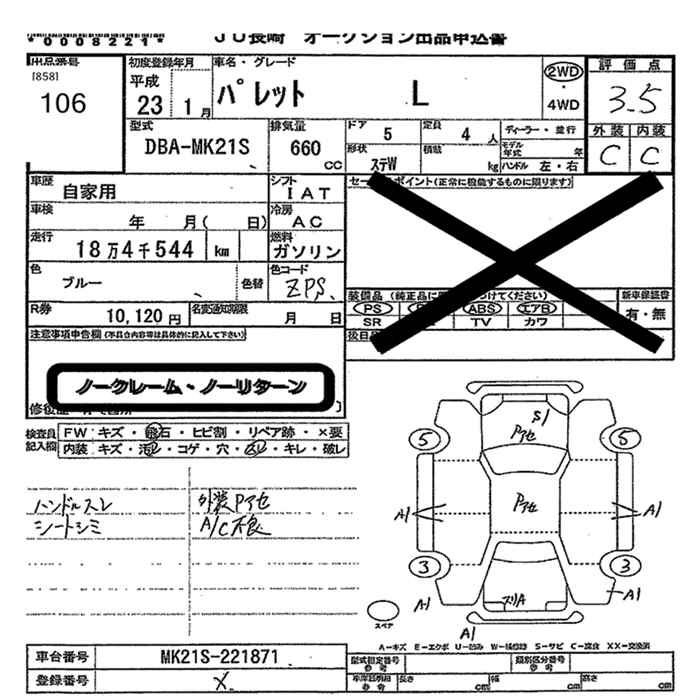 *0008221*
JU長崎 オークション出品申込書
出品番号
[858]
106
初度登録年月
平成
23 1月
車名・グレード
パレット L
2WD
・
4WD
評価点
3.5
外装 内装
C C
型式
DBA-MK21S
排気量
660
CC
ドア 5
定員 4人
ディーラー・並行
形状
ステW
積載 kg
モデル年式 年
ハンドル 左・右
車歴
自家用
シフト
IAT
セールスポイント(正常に機能するものに限ります)
車検
年 月( 日)
冷房
AC
走行
18万4千544 km
燃料
ガソリン
色
ブルー
色替
色コード
ZPS
装備品
新車保証書
有・無
PS
ABS
エアB
SR
TV
カワ
R券
10,120円
名変通知期限
月 日
後日
注意事項申告欄(不具合内容等は具体的に記入して下さい)
ノークレーム・ノーリターン
検査員
記入欄
FW キズ・飛石・ヒビ割・リペア跡・×要
内装 キズ・汚れ・コゲ・穴・スレ・キレ・破レ
ハンドルスレ
シートシミ
外装Pアセ
A/C不良
S1
Pアセ
5
5
Pアセ
A1
A1
3
3
スリA
A1
A1
A1
スペア
A-キズ E-エクボ U-凹み W-補修跡 S-サビ C-腐食 XX-交換済
車台番号
MK21S-221871
登録番号
×
型式指定番号
参考
類別区分番号
参考
車庫証明用
参考
長さ cm
幅 cm
高さ cm